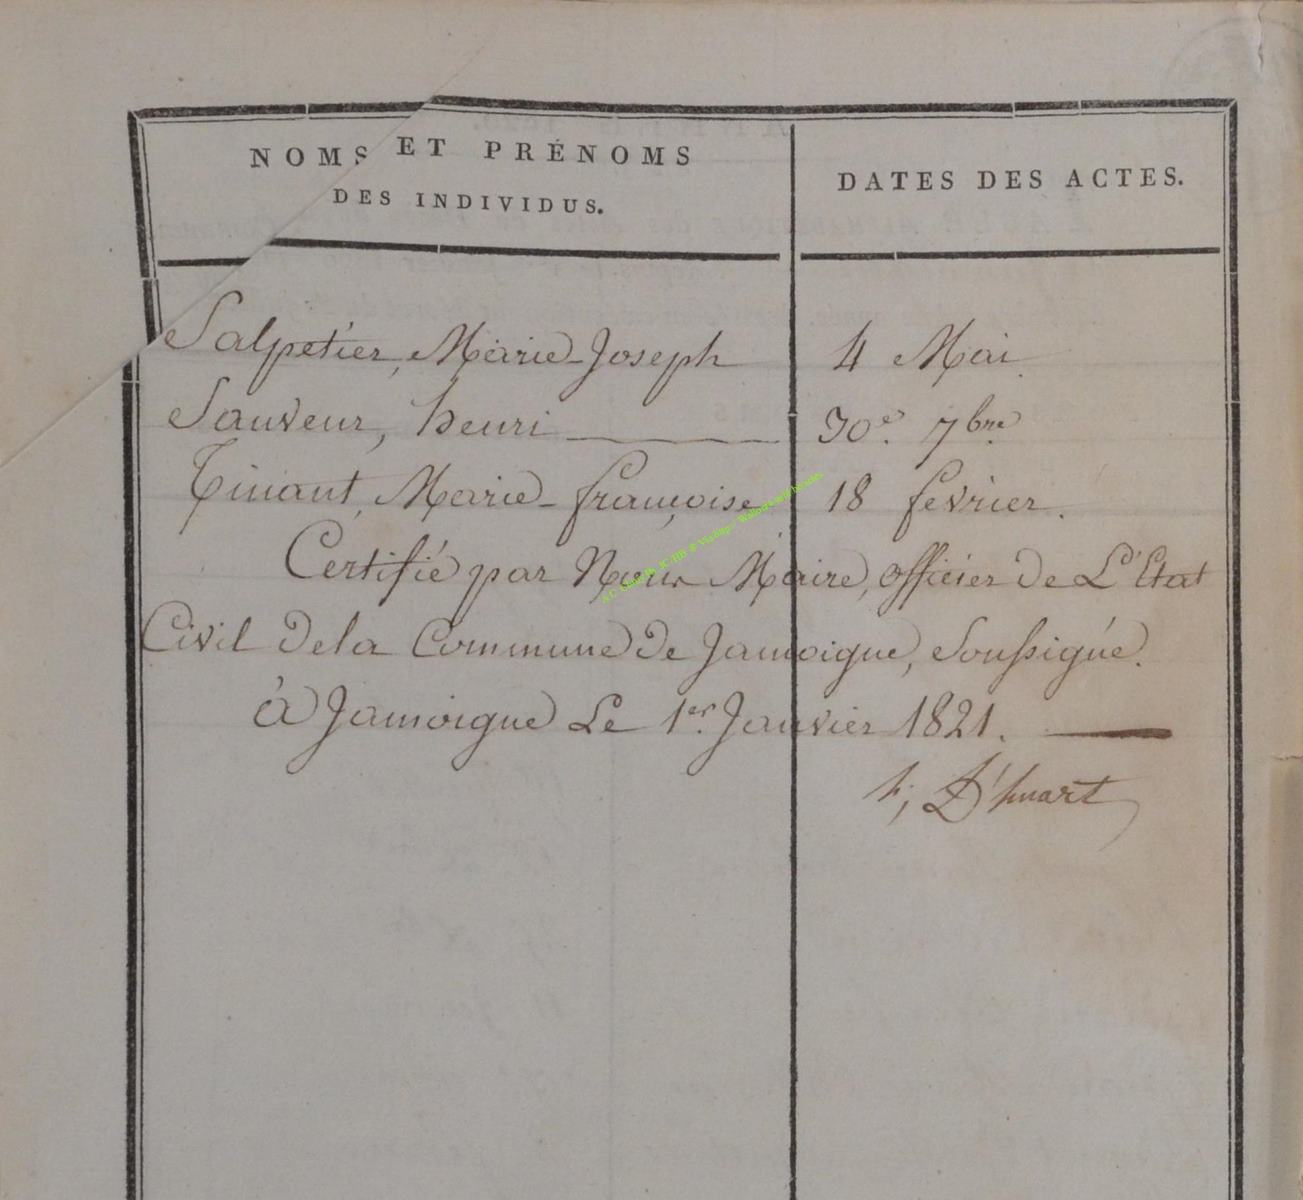 NOMS ET PRÉNOMS
DES INDIVIDUS.
DATES DES ACTES.
Salpetier, Marie-Joseph 4 Mai
Sauveur, henri 30e. 7bre
Tinant, Marie-françoise 18 fevrier.
Certifié par Nous Maire, officier De L'Etat
Civil Dela Commune De Jamoigne, Soussigné.
à Jamoigne Le 1er. Janvier 1821.
D'huart